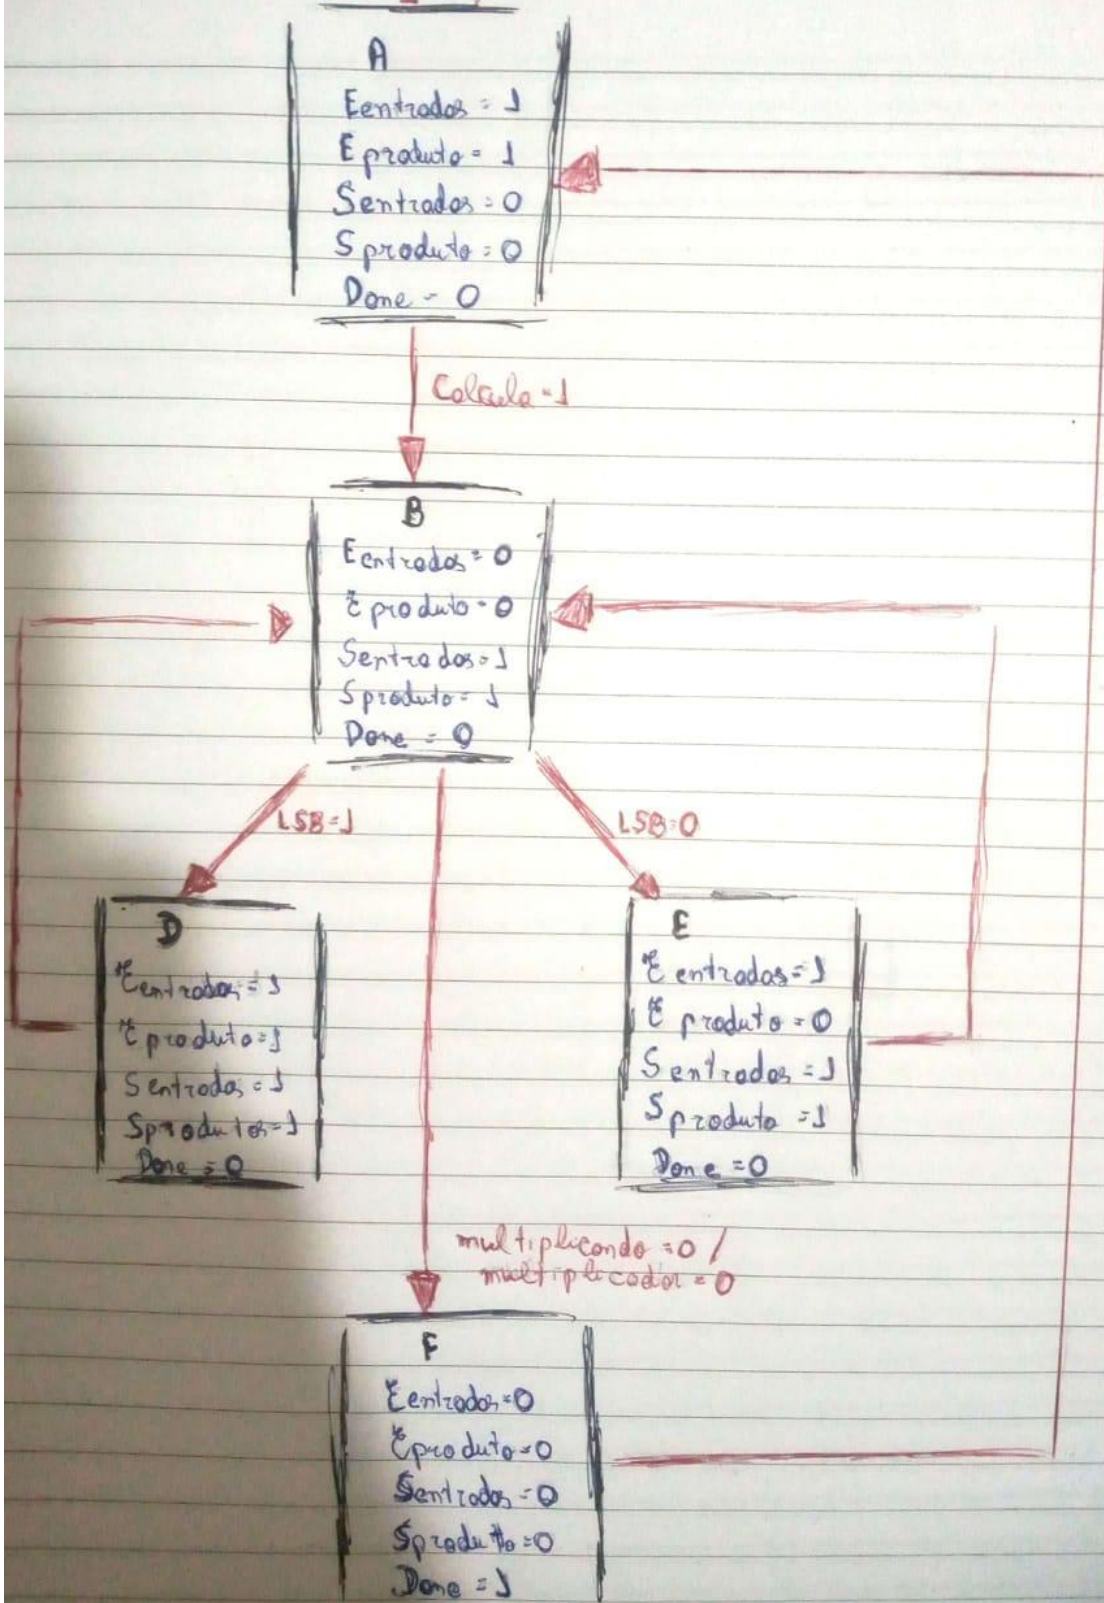 A
Eentrados = 1
Eproduto = 1
Sentrados = 0
Sproduto = 0
Done = 0
Calcula = 1
B
Eentrados = 0
Eproduto = 0
Sentrados = 1
Sproduto = 1
Done = 0
LSB = 1
LSB = 0
D
Eentrados = 1
Eproduto = 1
Sentrados = 1
Sprodutos = 1
Done = 0
E
Eentrados = 1
Eproduto = 0
Sentrados = 1
Sproduto = 1
Done = 0
multiplicando = 0 /
multiplicador = 0
F
Eentrados = 0
Eproduto = 0
Sentrados = 0
Sproduto = 0
Done = 1